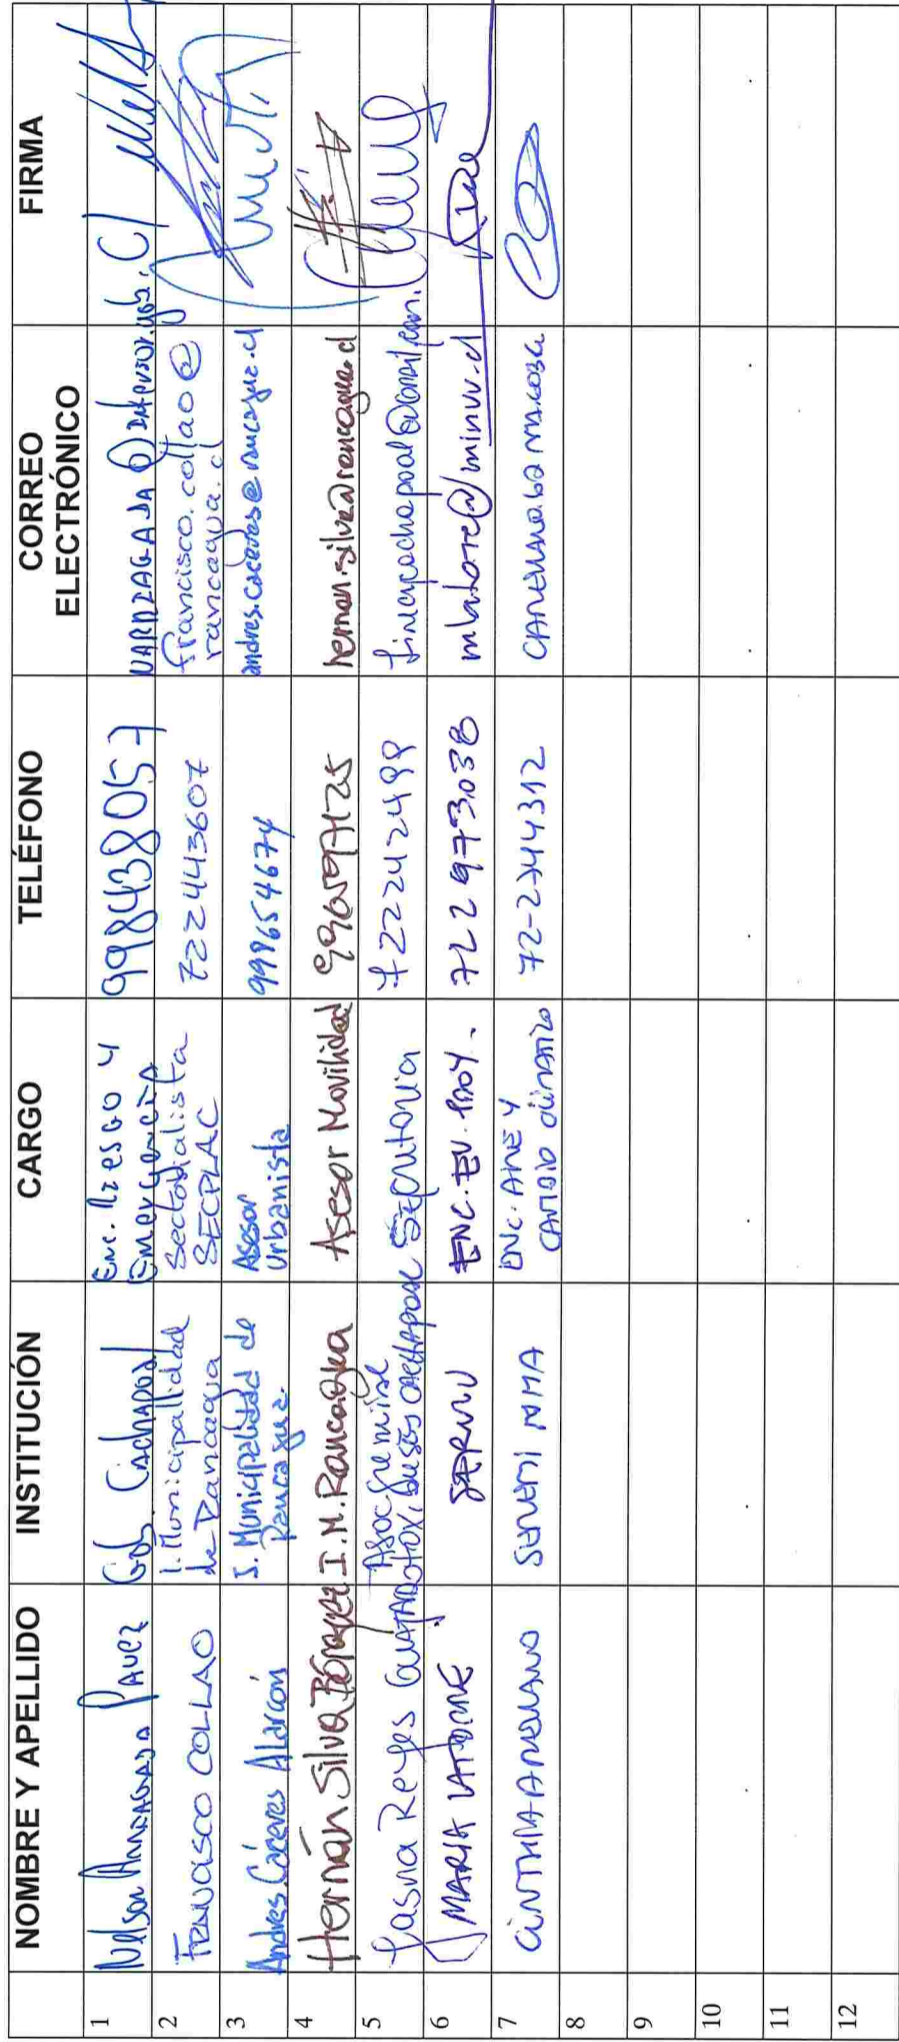 NOMBRE Y APELLIDO INSTITUCIÓN CARGO TELÉFONO CORREO ELECTRÓNICO FIRMA
1 Nelson Pavez Gob. Cachapoal Enc. Riesgo y Emergencia 998438057
2 Francisco COLLAO I. Municipallidad de Rancagua Sectorialista SECPLAC 722443607 francisco.collao@
rancagua.c
3 Andres Cáceres Alarcón I. Municipalidad de Rancagua. Asesor Urbanista 999654674 andres.caceres@rancagua.cl
4 Hernán Silva I.M. Rancagua Asesor Movilidad hernan.silva@rancagua.cl
5 Reyes Asoc gremial buses CACHAPOAL Secretaria 722242499
6 MARIA LATORRE SERVIU ENC. EV. PROY. 722973038 mlatorre@minvu.cl
7 CINTHIA ARELLANO SEREMI MMA ENC. AIRE Y CAMBIO CLIMATICO 72-2744312
8
9
10
11
12